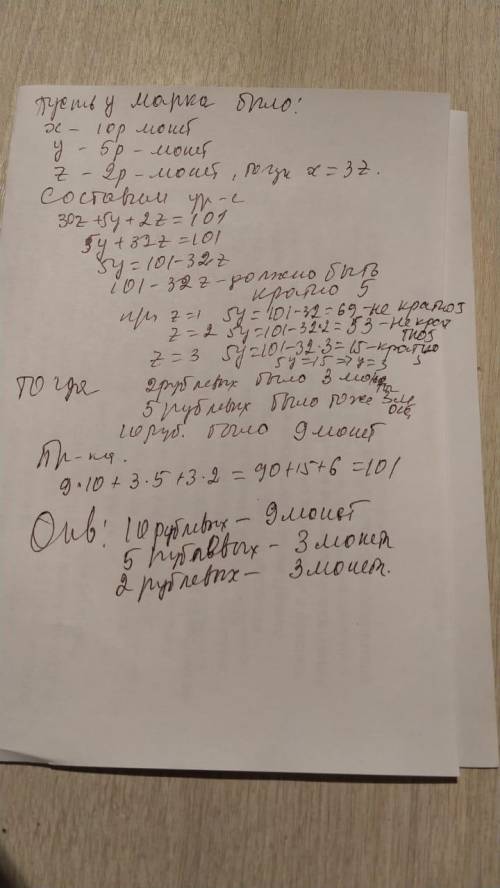 Пусть у Марка было:
x - 10р монет
y - 5р - монет
z - 2р - монет, тогда x = 3z.
Составим ур-е
30z + 5y + 2z = 101
5y + 32z = 101
5y = 101 - 32z
101 - 32z - должно быть
кратно 5
при z = 1 5y = 101 - 32 = 69 - не кратно 5
z = 2 5y = 101 - 32·2 = 53 - не крат
но 5
z = 3 5y = 101 - 32·3 = 15 - кратно
5y = 15 => y = 3 5
Тогда 2рублевых было 3 моне
ты
5 рублевых было тоже 3 м
10 руб. было 9 монет
Пр-ка.
9·10 + 3·5 + 3·2 = 90 + 15 + 6 = 101
Отв: 10 рублевых - 9 монет
5 рублёвых - 3 монет
2 рублевых - 3 монет.